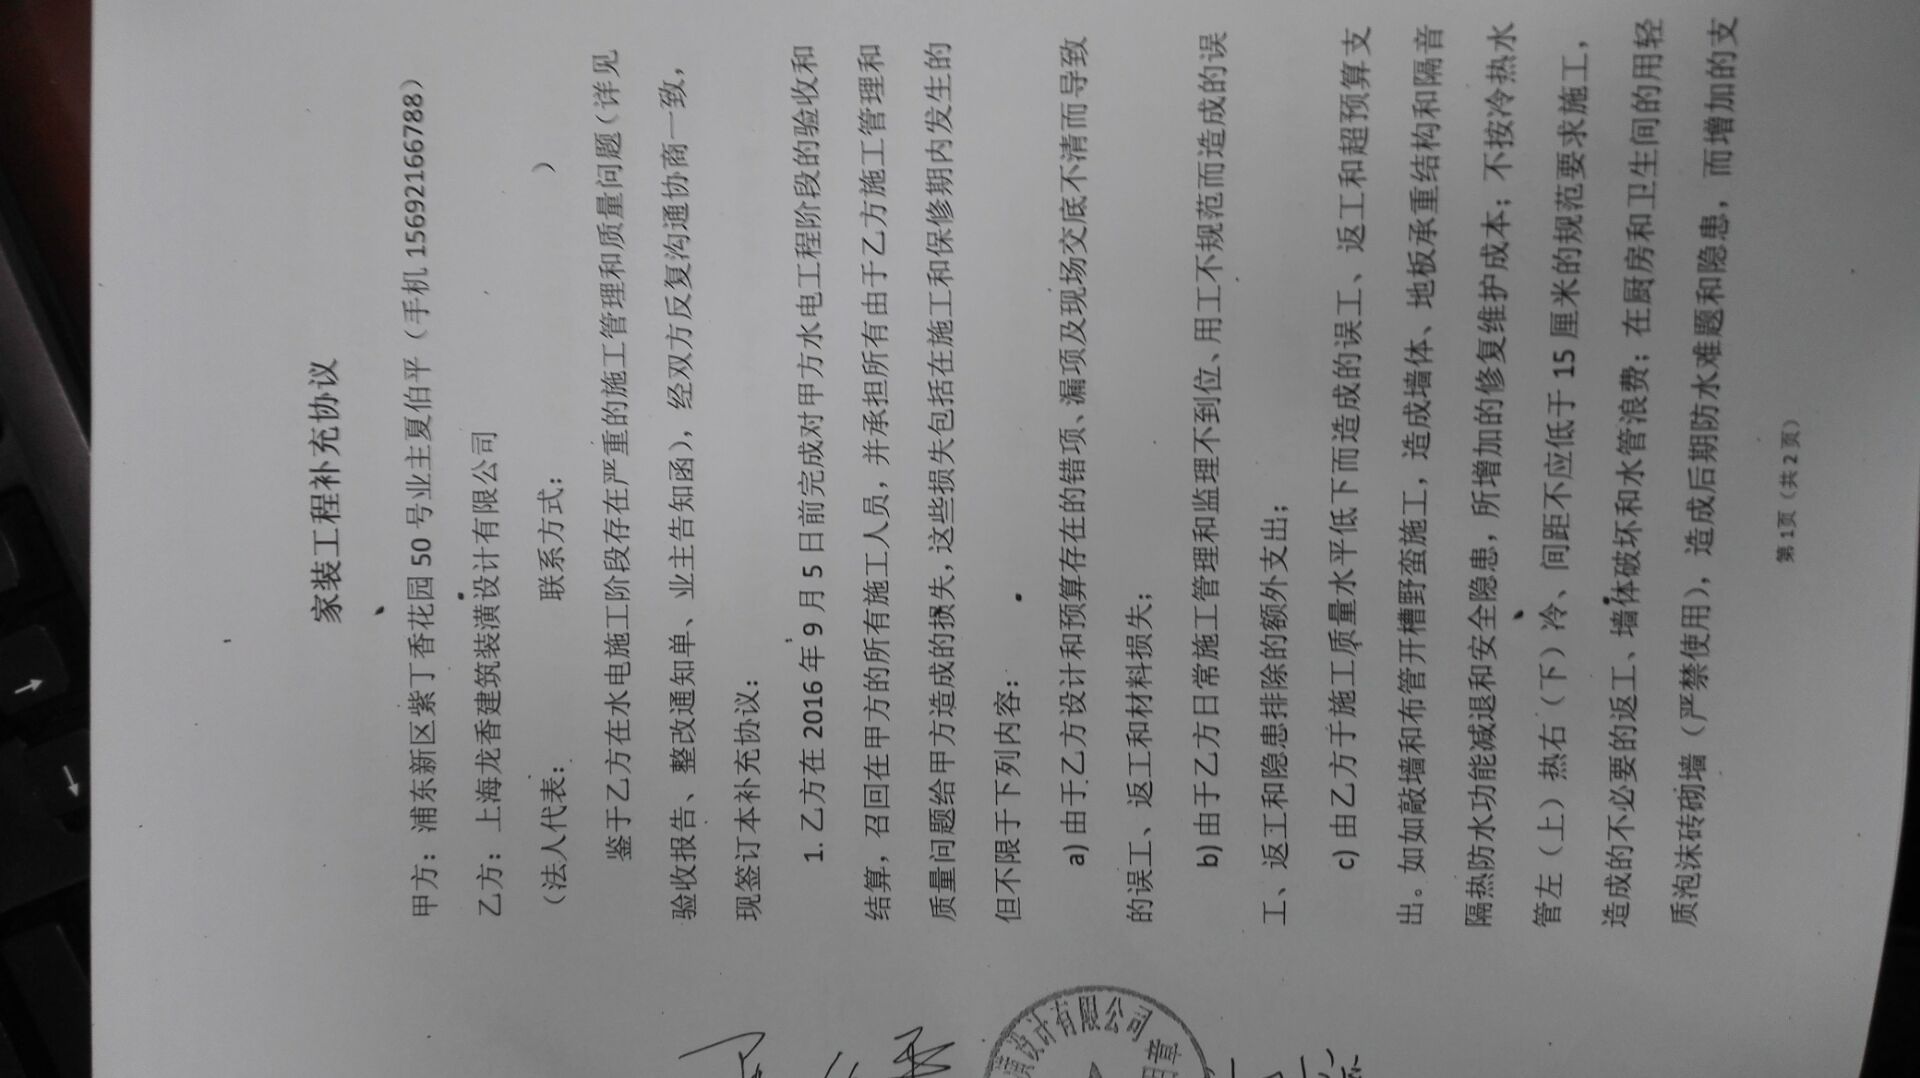 家装工程补充协议
甲方：浦东新区紫丁香花园 50 号业主夏伯平（手机 15692166788）
乙方：上海龙香建筑装潢设计有限公司
（法人代表： 联系方式： ）
鉴于乙方在水电施工阶段存在严重的施工管理和质量问题（详见
验收报告、整改通知单、业主告知函），经双方反复沟通协商一致，
现签订本补充协议：
1. 乙方在 2016 年 9 月 5 日前完成对甲方水电工程阶段的验收和
结算，召回在甲方的所有施工人员，并承担所有由于乙方施工管理和
质量问题给甲方造成的损失，这些损失包括在施工和保修期内发生的
但不限于下列内容：
a) 由于乙方设计和预算存在的错项、漏项及现场交底不清而导致
的误工、返工和材料损失；
b) 由于乙方日常施工管理和监理不到位、用工不规范而造成的误
工、返工和隐患排除的额外支出；
c) 由乙方于施工质量水平低下而造成的误工、返工和超预算支
出。如如敲墙和布管开槽野蛮施工，造成墙体、地板承重结构和隔音
隔热防水功能减退和安全隐患，所增加的修复维护成本；不按冷热水
管左（上）热右（下）冷、间距不应低于 15 厘米的规范要求施工，
造成的不必要的返工、墙体破坏和水管浪费；在厨房和卫生间的用轻
质泡沫砖砌墙（严禁使用），造成后期防水难题和隐患，而增加的支
第 1 页（共 2 页）
设计有限公司
章